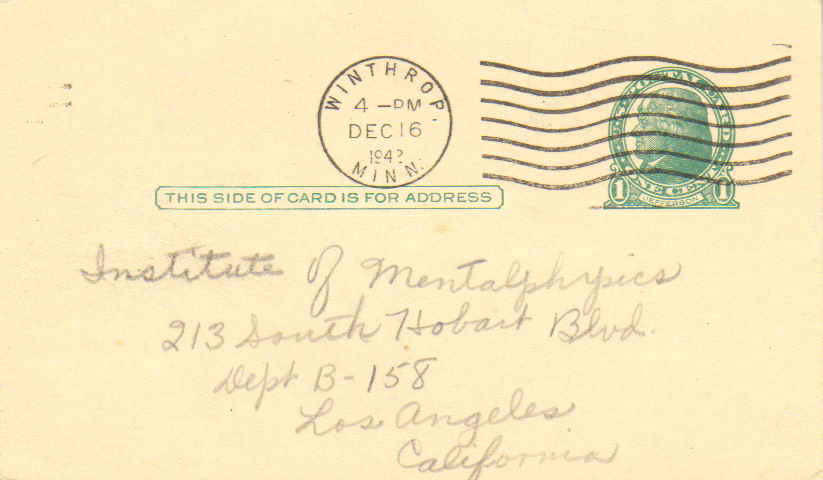 WINTHROP
4 -PM
DEC 16
MINN.
U.S. POSTAL CARD
ONE CENT
1 JEFFERSON 1
THIS SIDE OF CARD IS FOR ADDRESS
Institute of Mentalphysics
213 South Hobart Blvd.
Dept B-158
Los Angeles
California